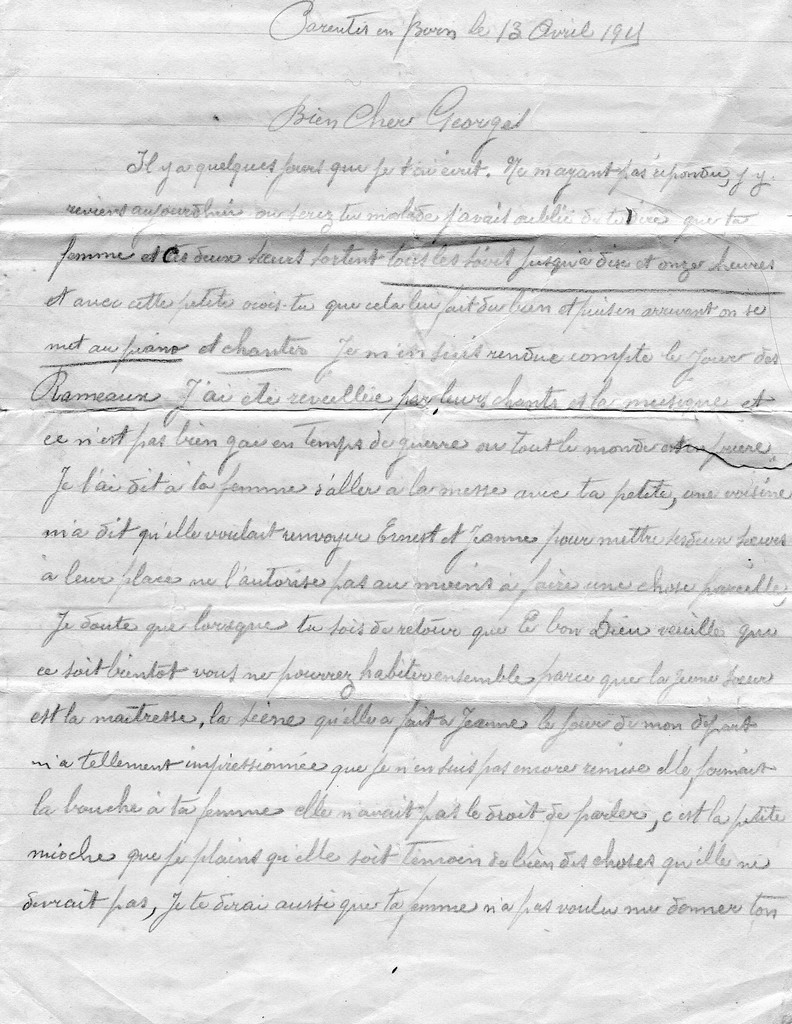 Parentis en Born le 13 Avril 1915
Bien Cher Georges
Il y a quelques jours que je t'ai écrit. Ne mayant pas répondu, j'y
reviens aujourdhui ou serez tu malade j'avais oublié de te dire que ta
femme et ces deux sœurs sortent tous les soirs jusqu'à dix et onze heures
et avec cette petite crois-tu que cela leu fait du bien et puis en arrivant on se
met au piano et chanter Je m'en suis rendue compte le jour des
Rameaux. J'ai été réveillée par leurs chants et la musique et
ce n'est pas bien gai en temps de guerre ou tout le monde est en prière
Je l'ai dit à ta femme d'aller a la messe avec ta petite, une voisine
m'a dit qu'elle voulait renvoyer Ernest et Jeanne pour mettre ses deux sœurs
à leur place ne l'autorise pas au moins a faire une chose pareille,
Je doute que lorsque tu sois de retour que le bon Dieu veuille que
ce soit bientot vous ne pourrez habiter ensemble parce que la jeune sœur
est la maîtresse, la scène qu'elle a fait a Jeanne le jour de mon départ
m'a tellement impressionnée que je n'en suis pas encore remise elle fermait
la bouche à ta femme elle n'avait pas le droit de parler, c'est la petite
mioche que je plains qu'elle soit témoin de bien des choses qu'elle ne
devrait pas, Je te dirai aussi que ta femme n'a pas voulu me donner ton